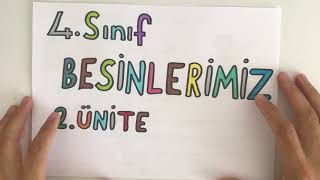 4. Sınıf
BESİNLERİMİZ
2. ÜNİTE